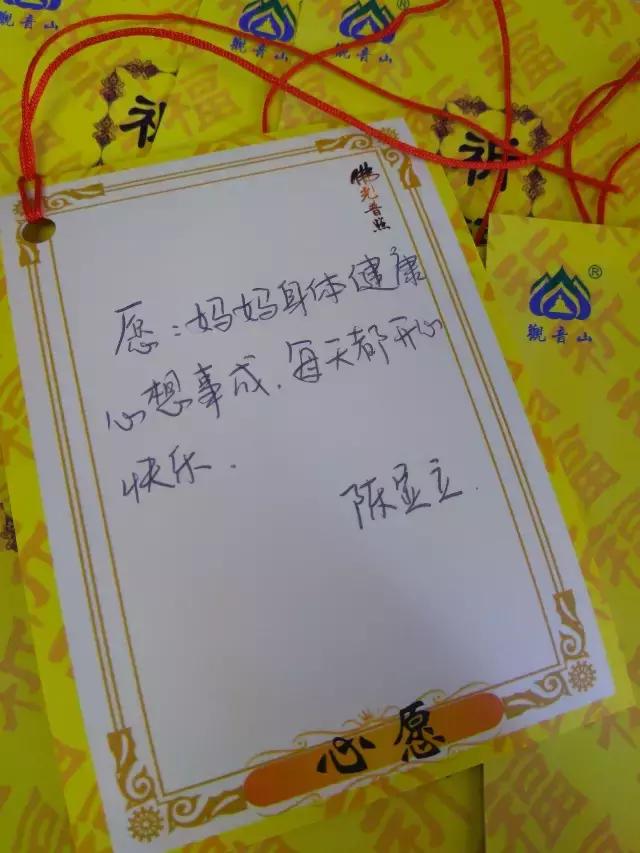 觀音山
觀音山
觀音山
祈
祈
祈福
佛光普照
愿：妈妈身体健康
心想事成，每天都开心
快乐．
陈显立．
®
觀音山
心愿